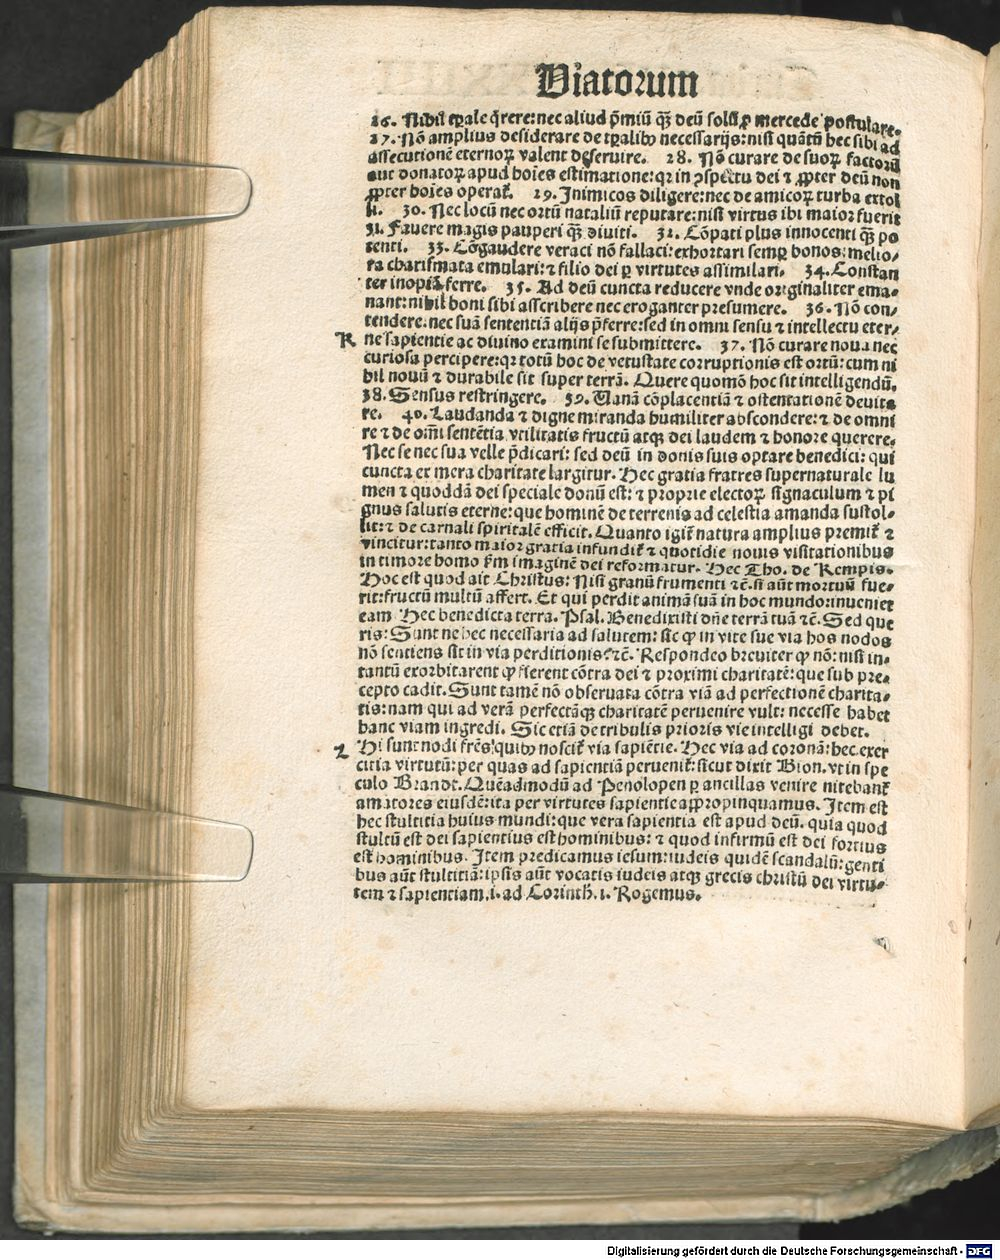 Viatorum
26. Nihil tp̄ale q̄rere: nec aliud p̄miū q̄ꝫ deū solū ꝓ mercede postulare.
27. Nō amplius desiderare de tp̄alibꝰ necessarijs: nisi quātū hec sibi ad
assecutionē eternoꝝ valent deseruire. 28. Nō curare de suoꝝ factorū
aut donatoꝝ apud hoīes estimatione: qꝛ in ꝯspectu dei ⁊ ꝓpter deū non
ꝓpter hoīes operat᷑. 29. Inimicos diligere: nec de amicoꝝ turba extol
li. 30. Nec locū nec ortū nataliū reputare: nisi virtus ibi maior fuerit
31. Fauere magis pauperi q̄ꝫ diuiti. 32. Cōpati plus innocenti q̄ꝫ po
tenti. 33. Cōgaudere veraci nō fallaci: exhortari semꝑ bonos: melio-
ra charismata emulari: ⁊ filio dei ꝑ virtutes assimilari. 34. Constan
ter inopiā ferre. 35. Ad deū cuncta reducere vnde originaliter ema-
nant: nihil boni sibi asscribere nec eroganter presumere. 36. Nō con-
tendere. nec suā sententiā alijs p̄ferre: sed in omni sensu ⁊ intellectu eter-
R ne sapientie ac diuino examini se submittere. 37. Nō curare noua nec
curiosa percipere: qꝛ totū hoc de vetustate corruptionis est ortū: cum ni
hil nouū ⁊ durabile sit super terrā. Quere quomō hoc sit intelligendū.
38. Sensus restringere. 39. Vanā cōplacentiā ⁊ ostentationē deuita
re. 40. Laudanda ⁊ digne miranda humiliter abscondere: ⁊ de omni
re ⁊ de om̄i sentētia vtilitatis fructū atqꝫ dei laudem ⁊ honore querere.
Nec se nec sua velle p̄dicari: sed deū in donis suis optare benedici: qui
cuncta ex mera charitate largitur. Hec gratia fratres supernaturale lu
men ⁊ quoddā dei speciale donū est: ⁊ proprie electoꝝ signaculum ⁊ pi
gnus salutis eterne: que hominē de terrenis ad celestia amanda sustol-
lit: ⁊ de carnali spiritalē efficit. Quanto igit᷑ natura amplius premit᷑ ⁊
vincitur: tanto maior gratia infundit᷑ ⁊ quotidie nouis visitationibus
in timore homo ẜm imaginē dei reformatur. Hec Tho. de Kempis.
Hoc est quod ait Christus: Nisi granū frumenti ⁊c̄. si aūt mortuū fue-
rit: fructū multū affert. Et qui perdit animā suā in hoc mundo: inueniet
eam Hec benedicta terra. Psal. Benedixisti dn̄e terrā tuā ⁊c̄. Sed que
ris: Sunt ne hec necessaria ad salutem: sic ꝙ in vite sue via hos nodos
nō sentiens sit in via perditionis? ⁊c̄. Respondeo breuiter ꝙ nō: nisi in-
tantū exorbitarent ꝙ fierent cōtra dei ⁊ proximi charitatē: que sub pre-
cepto cadit. Sunt tamē nō obseruata cōtra viā ad perfectionē charita-
tis: nam qui ad verā perfectāqꝫ charitatē peruenire vult: necesse habet
hanc viam ingredi. Sic etiā de tribulis prioris vie intelligi debet.
Z Hi sunt nodi fr̄es quibꝰ noscit᷑ via sapiētie. Hec via ad coronā: hec exer
citia virtutū: per quas ad sapientiā peruenit᷑: sicut dixit Bion. vt in spe
culo Brandt. Quēadmodū ad Penolopen ꝑ ancillas venire nitebant᷑
amatores eiusdē: ita per virtutes sapientie appropinquamus. Item est
hec stultitia huius mundi: que vera sapientia est apud deū. quia quod
stultū est dei sapientius est hominibus: ⁊ quod infirmū est dei fortius
est hominibus. Item predicamus iesum: iudeis quidē scandalū: genti
bus aūt stultitiā: ipsis aūt vocatis iudeis atqꝫ grecis christū dei virtu-
tem ⁊ sapientiam. i. ad Corinth. i. Rogemus.
Digitalisierung gefördert durch die Deutsche Forschungsgemeinschaft - DFG